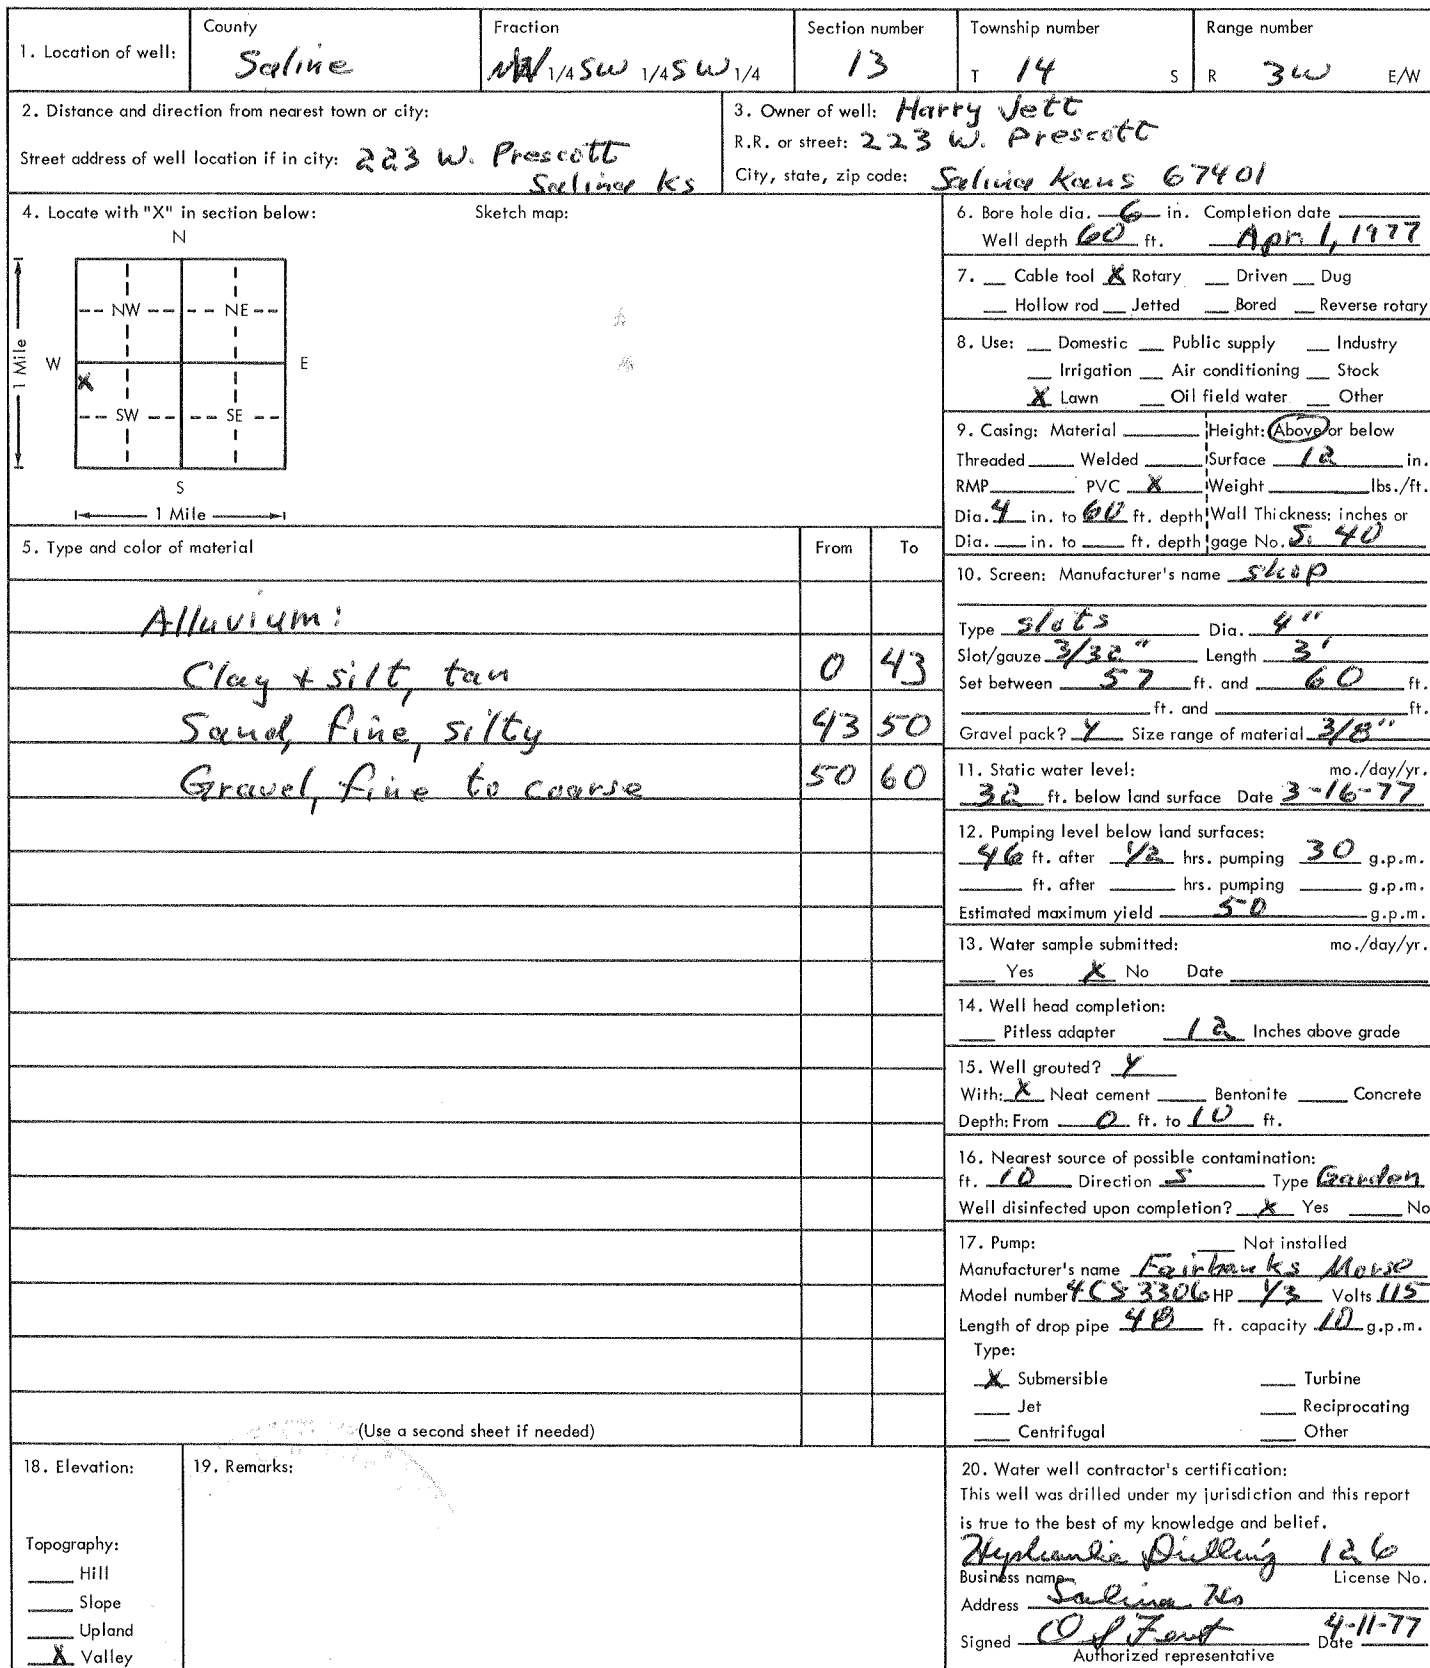 1. Location of well:
County
Saline
Fraction
1/4 SW 1/4 SW 1/4
Section number
13
Township number
T 14 S
Range number
R 3W E/W
2. Distance and direction from nearest town or city:
Street address of well location if in city: 223 W. Prescott
Salina Ks
3. Owner of well: Harry Jett
R.R. or street: 223 W. Prescott
City, state, zip code: Salina Kans 67401
4. Locate with "X" in section below:
Sketch map:
N
NW NE
W E
1 Mile
X
SW SE
S
1 Mile
5. Type and color of material From To
Alluvium:
Clay + silt, tan 0 43
Sand, fine, silty 43 50
Gravel, fine to coarse 50 60
(Use a second sheet if needed)
6. Bore hole dia. 6 in. Completion date
Well depth 60 ft. Apr. 1, 1977
7. Cable tool X Rotary Driven Dug
Hollow rod Jetted Bored Reverse rotary
8. Use: Domestic Public supply Industry
Irrigation Air conditioning Stock
X Lawn Oil field water Other
9. Casing: Material Height: Above or below
Threaded Welded Surface 12 in.
RMP PVC X Weight lbs./ft.
Dia. 4 in. to 60 ft. depth Wall Thickness: inches or
Dia. in. to ft. depth gage No. S. 40
10. Screen: Manufacturer's name shop
Type slots Dia. 4"
Slot/gauze 3/32" Length 3'
Set between 57 ft. and 60 ft.
ft. and ft.
Gravel pack? Y Size range of material 3/8"
11. Static water level: mo./day/yr.
32 ft. below land surface Date 3-16-77
12. Pumping level below land surfaces:
46 ft. after 1/2 hrs. pumping 30 g.p.m.
ft. after hrs. pumping g.p.m.
Estimated maximum yield 50 g.p.m.
13. Water sample submitted: mo./day/yr.
Yes X No Date
14. Well head completion:
Pitless adapter 12 Inches above grade
15. Well grouted? Y
With: X Neat cement Bentonite Concrete
Depth: From 0 ft. to 10 ft.
16. Nearest source of possible contamination:
ft. 10 Direction S Type Garden
Well disinfected upon completion? X Yes No
17. Pump: Not installed
Manufacturer's name Fairbanks Morse
Model number 4CS3306 HP 1/3 Volts 115
Length of drop pipe 48 ft. capacity 10 g.p.m.
Type:
X Submersible Turbine
Jet Reciprocating
Centrifugal Other
18. Elevation:
Topography:
Hill
Slope
Upland
X Valley
19. Remarks:
20. Water well contractor's certification:
This well was drilled under my jurisdiction and this report
is true to the best of my knowledge and belief.
Drilling 126
Business name License No.
Address Salina Ks
Signed 4-11-77
Date
Authorized representative